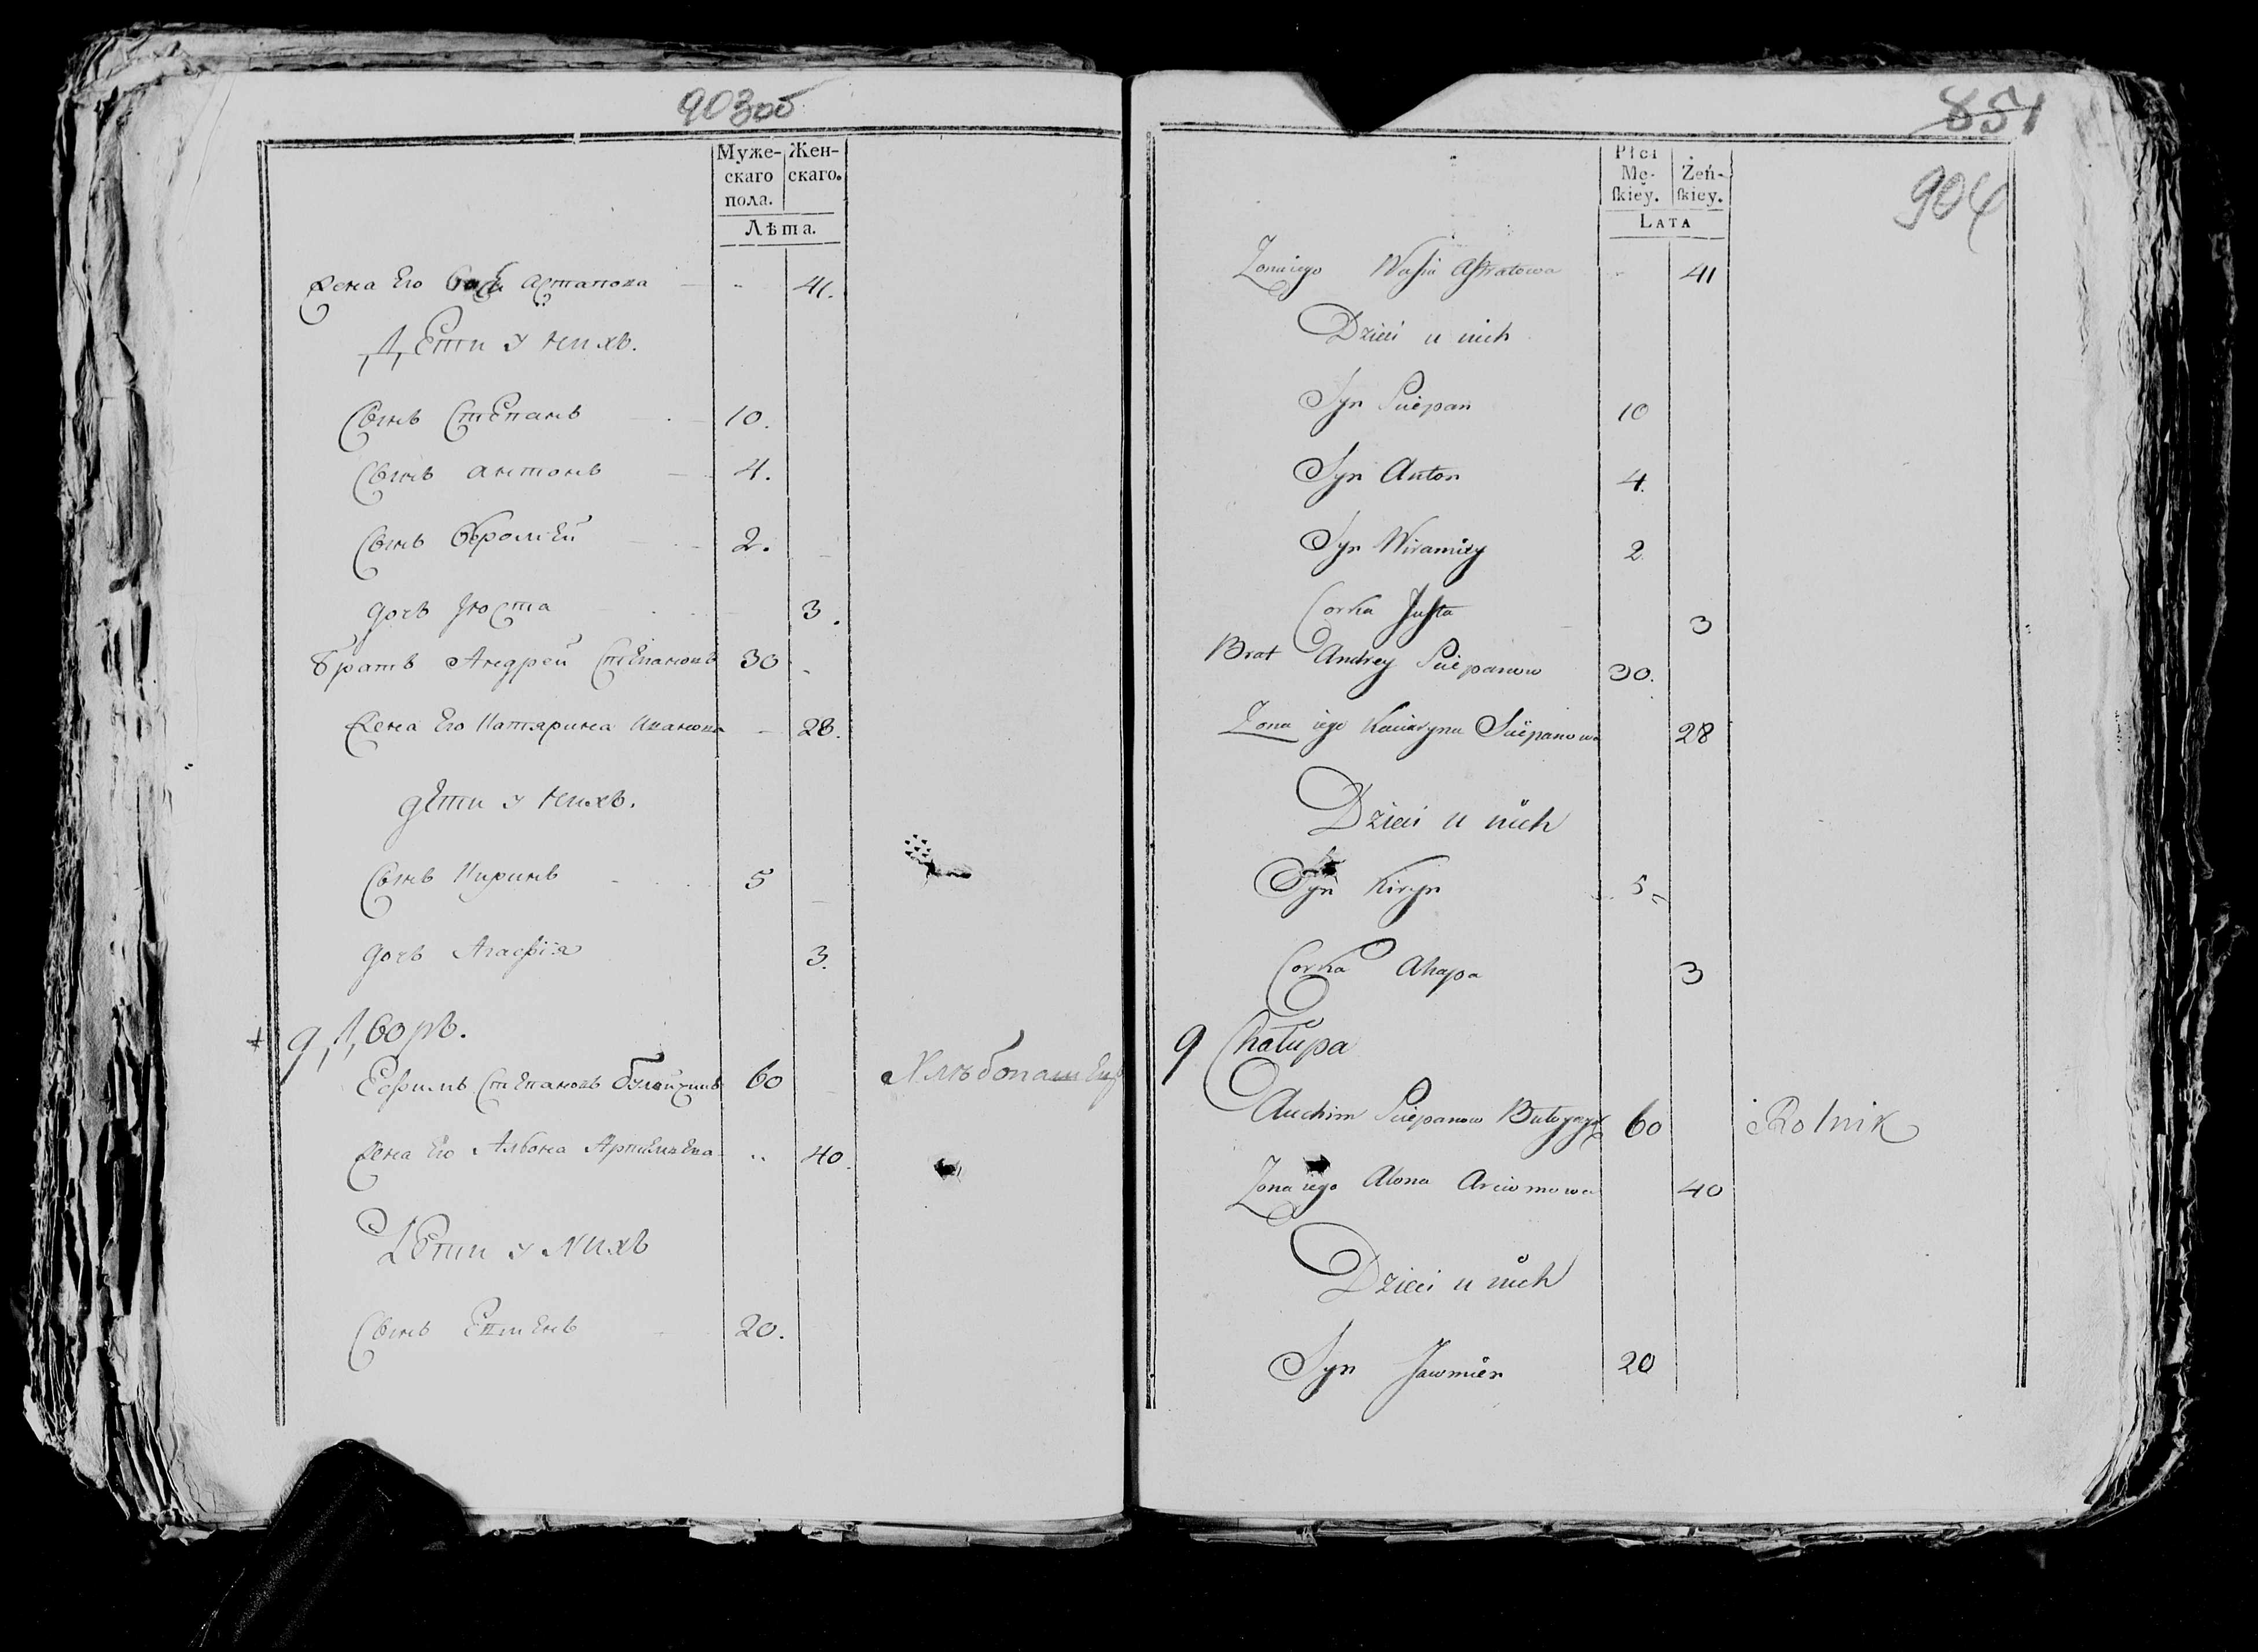 903об
Муже-
скаго
пола.
Жен-
скаго.
Лѣта.
Жена Его Астапова 41.
Дѣти у нихъ.
Сынъ Степанъ 10.
Сынъ Антонъ 4.
Сынъ 2.
Дочь Юста 3.
Братъ Андрей Степановъ 30
Жена Его Катярина Иванова 28.
Дѣти у нихъ.
Сынъ Киринъ 5
Дочь Агафія 3.
9 Дворъ.
Ефимъ Степановъ 60 Хлѣбопашец
Жена Его Алѣона Артемьева 40.
Дѣти у нихъ
Сынъ Евменъ 20.
851
904
Płci
Mę-
ſkiey.
Żeń-
ſkiey.
LATA
Zona iego Astratowa 41
Dzieci u nich
Syn Sciepan 10
Syn Anton 4.
Syn Wiramiey 2
Corka Justa 3
Brat Andrey Sciepanow 30.
Zona iego Kaciaryna Sciepanowa 28
Dzieci u nich
Syn Kiryn 5
Corka Ahapa 3
9 Chałupa
Auchim Sciepanow 60 Rolnik
Zona iego Alona Arciomowa 40
Dzieci u nich
Syn Jawmien 20